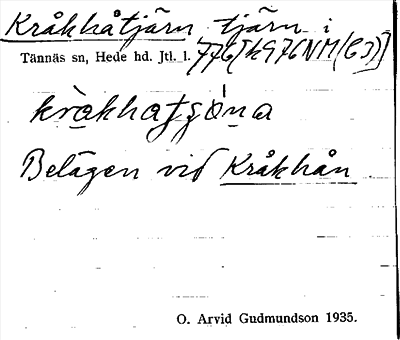 Kråkhåtjärn tjärn i
Tännäs sn, Hede hd. Jtl. l.
Belägen vid Kråkhån
O. Arvid Gudmundson 1935.